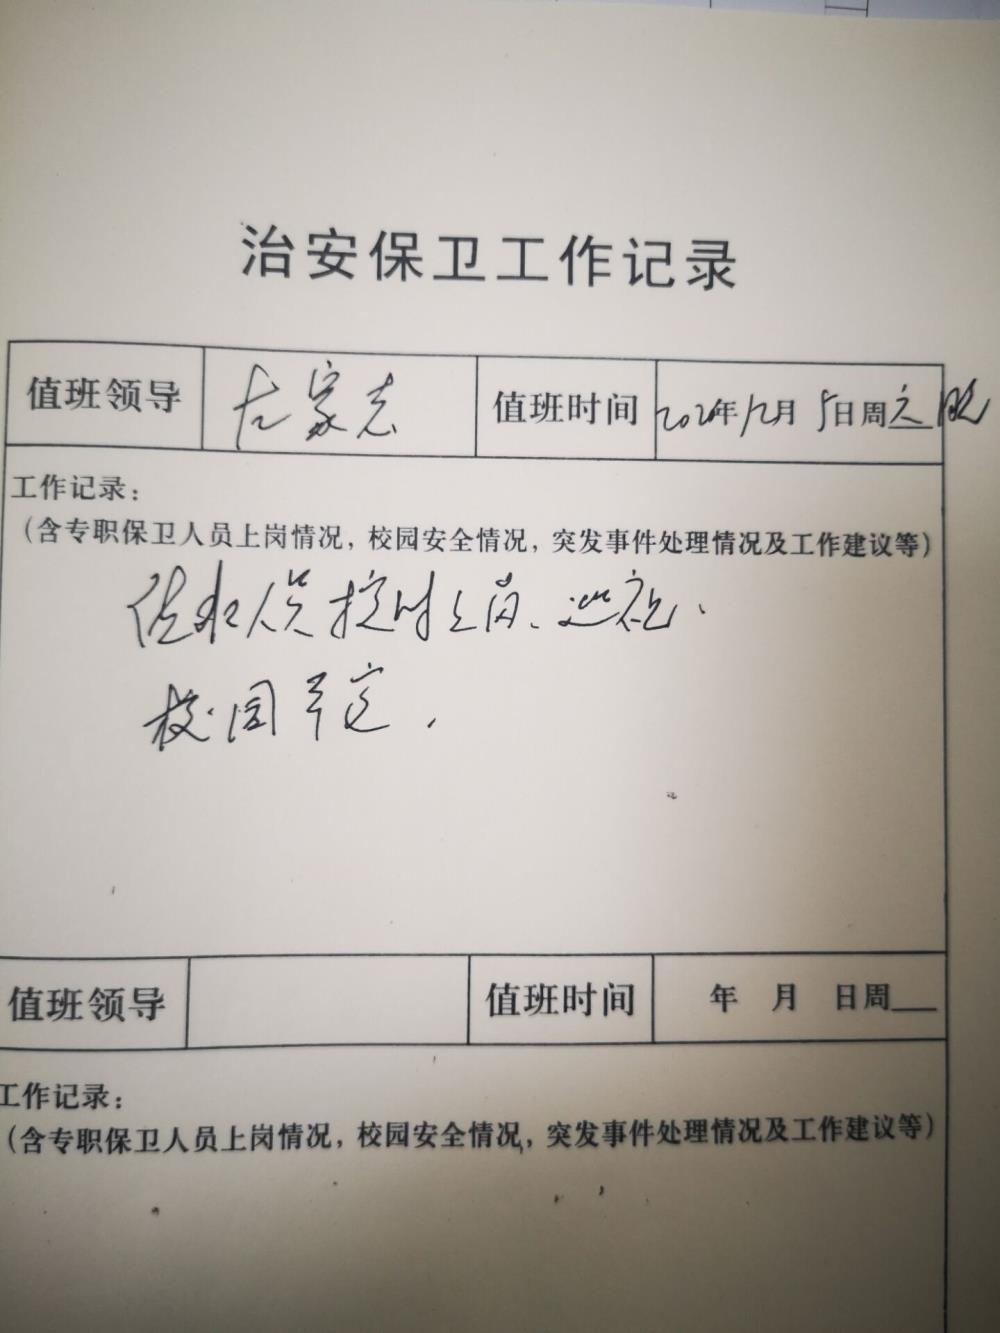 治安保卫工作记录
值班领导 左家志 值班时间 2020年12月5日周六晚
工作记录：
（含专职保卫人员上岗情况，校园安全情况，突发事件处理情况及工作建议等）
保卫人员按时上岗、巡视.
校园平安.
值班领导 值班时间 年 月 日周
工作记录：
（含专职保卫人员上岗情况，校园安全情况，突发事件处理情况及工作建议等）